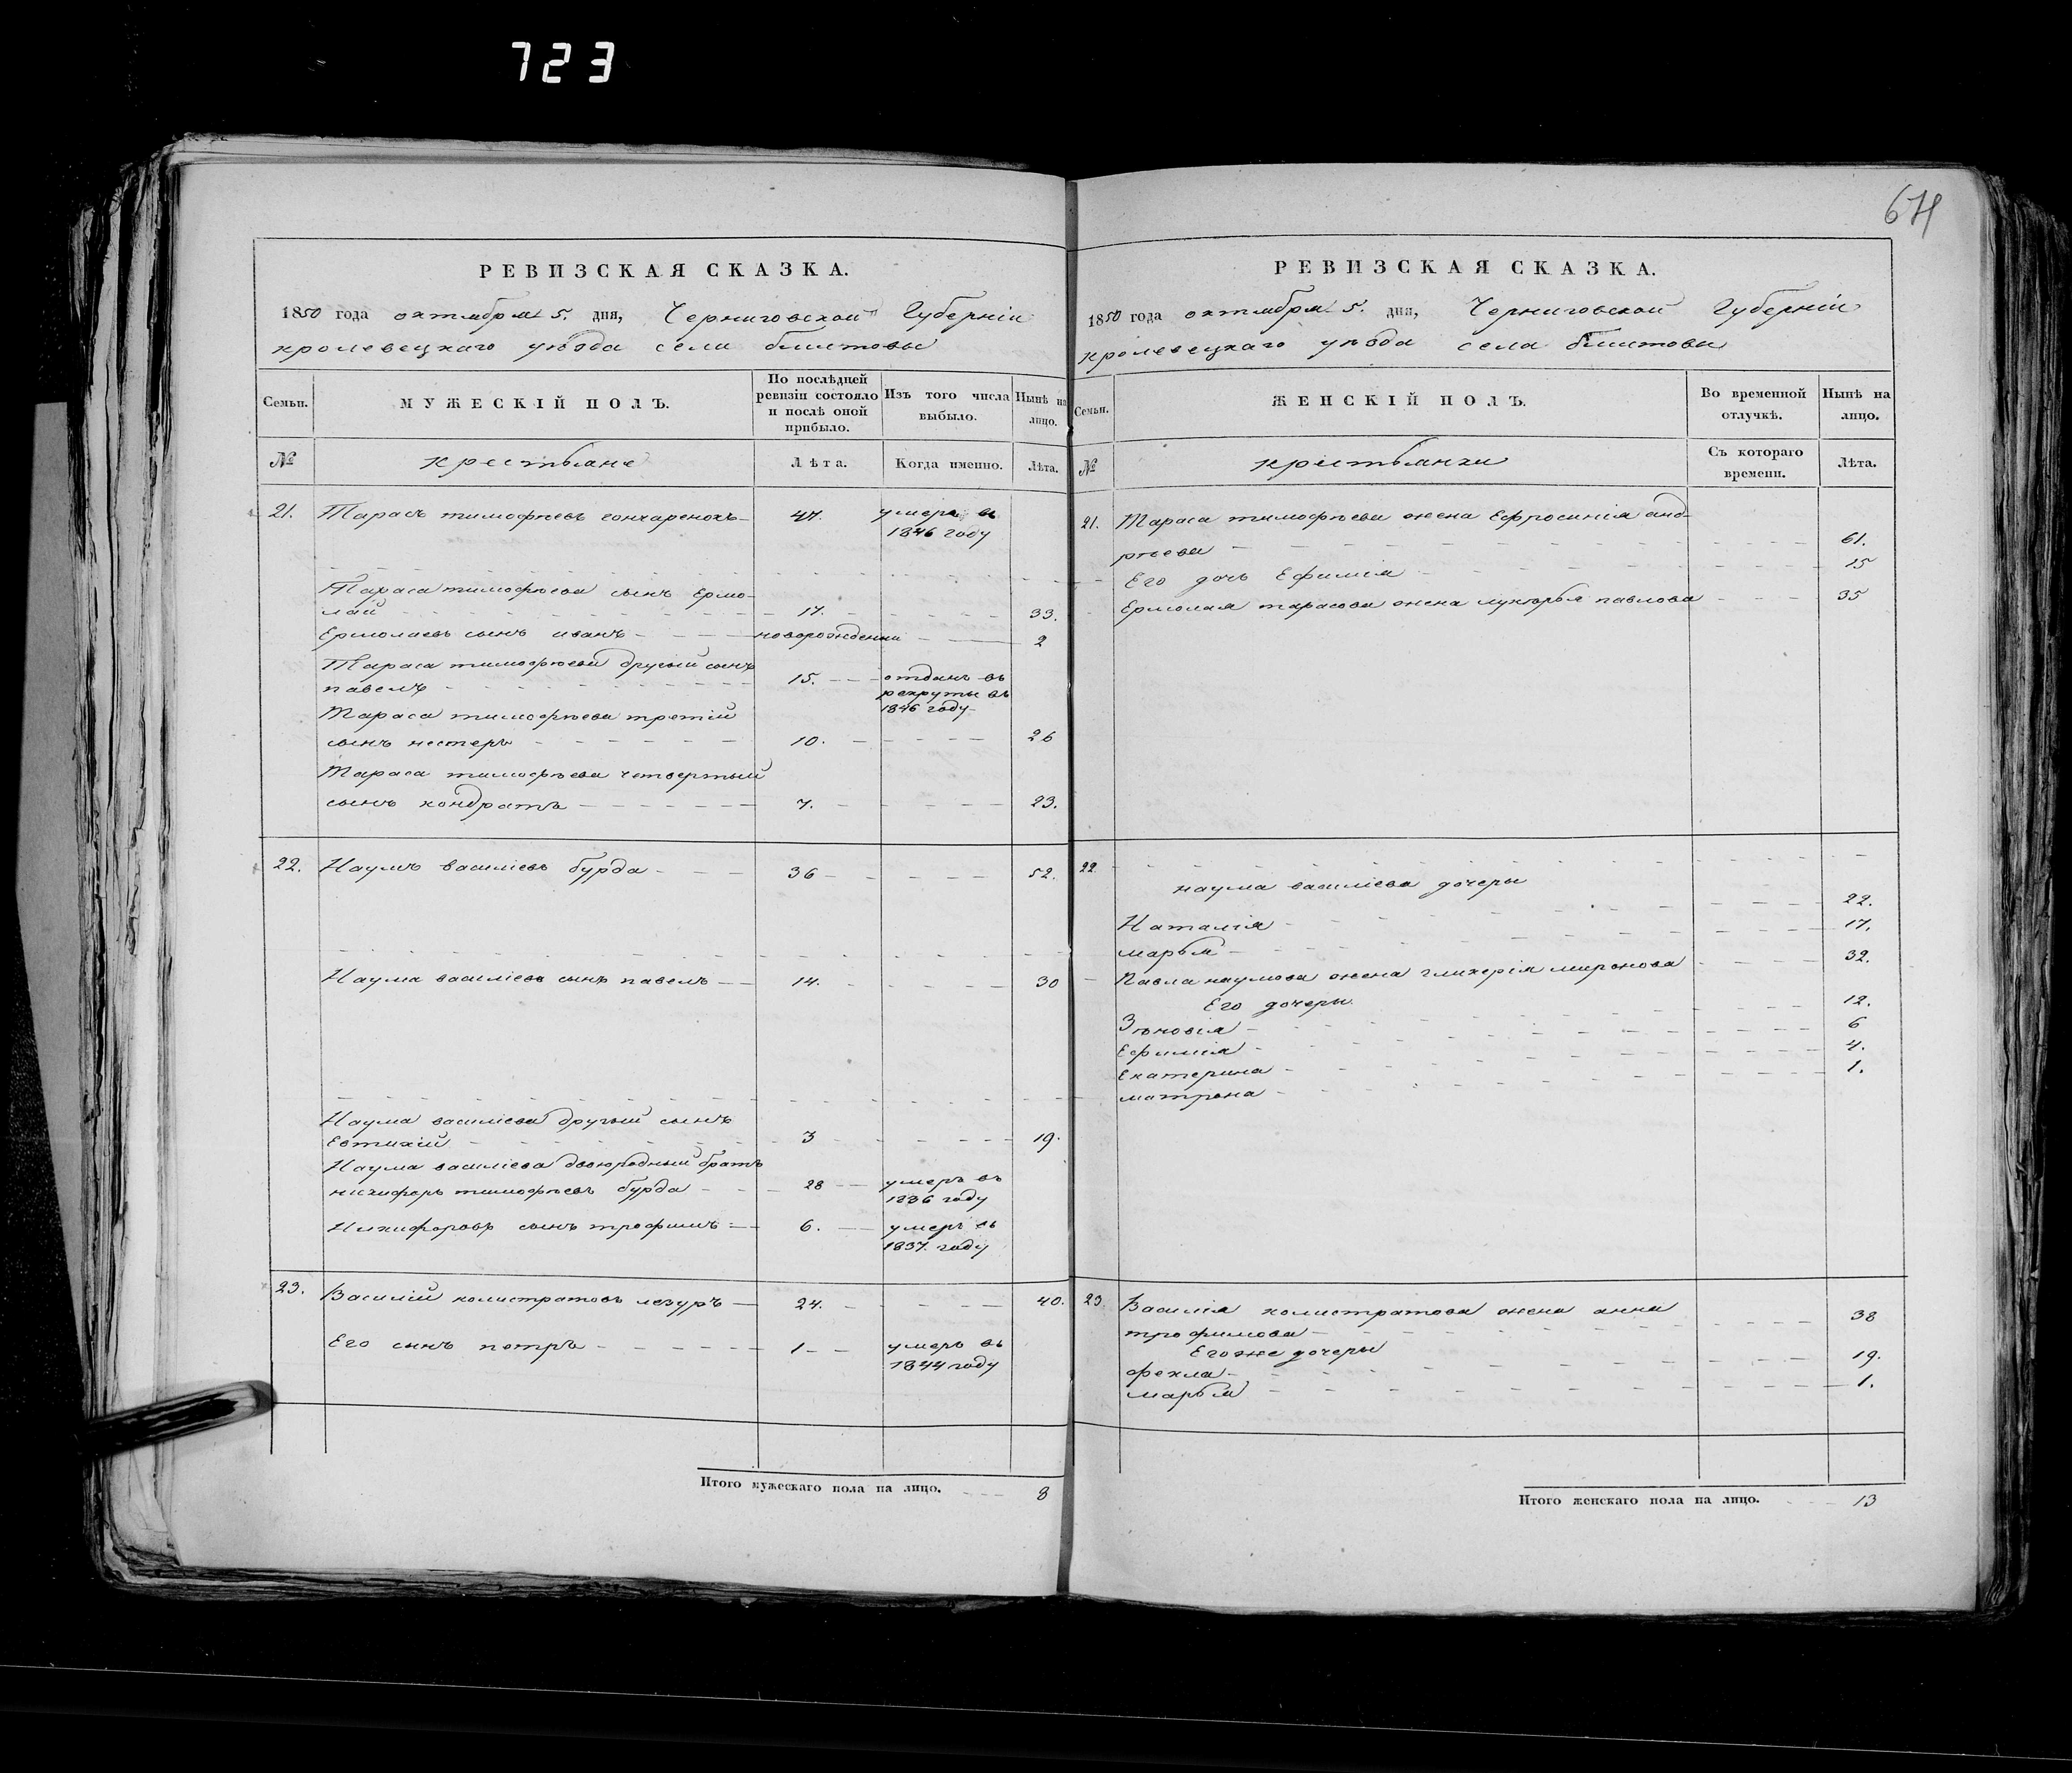 723
674
РЕВИЗСКАЯ СКАЗКА.
1850 года октября 5. дня, Черниговской Губерніи
кролевецкаго уѣзда села блистовы
Семьи.
МУЖЕСКІЙ ПОЛЪ.
По послѣдней ревизіи состояло и послѣ оной прибыло.
Изъ того числа выбыло.
Нынѣ на лицо.
№
крестьяне
Лѣта.
Когда именно.
Лѣта.
21. Тарасъ тимофѣевъ гончаренокъ 47. умеръ въ
1846 году
Тараса тимофѣева сынъ Ермо-
лай 17. 33.
Ермолаевъ сынъ иванъ новорожденни 2
Тараса тимофѣева другый сынъ
павелъ 15. отданъ въ
рекруты въ
1846 году
Тараса тимофѣева третій
сынъ нестеръ 10. 26
Тараса тимофѣева четвертый
сынъ кондратъ 7. 23.
22. Наумъ василіевъ бурда 36 52.
Наума василіева сынъ павелъ 14. 30
Наума василіева другый сынъ
Евтихій 3 19.
Наума василіева двоюродный братъ
никифоръ тимофѣевъ бурда 28 умеръ въ
1836 году
Никифоровъ сынъ трофимъ 6. умеръ въ
1837. году
23. Василій калистратовъ лезуръ 24. 40.
Его сынъ петръ 1 умеръ въ
1844 году
Итого мужескаго пола на лицо. 8
РЕВИЗСКАЯ СКАЗКА.
1850 года октября 5. дня, Черниговской Губерніи
кролевецкаго уѣзда села блистовы
Семьи.
ЖЕНСКІЙ ПОЛЪ.
Во временной отлучкѣ.
Нынѣ на лицо.
№
крестьянки
Съ котораго времени.
Лѣта.
21. Тараса тимофѣева жена Ефросинія анд-
рѣева 61.
Его дочь Ефимія 15
Ермолая тарасова жена лукерья павлова 35
22
наума василіева дочеры
Наталія 22.
марья 17.
Павла наумова жена гликерія миронова 32.
Его дочеры
Зѣновія 12.
Ефимія 6
Екатерина 4.
матрона 1.
23 Василія колистратова жена анна
трофимова 38
Его же дочеры
фекла 19.
марья 1.
Итого женскаго пола на лицо. 13